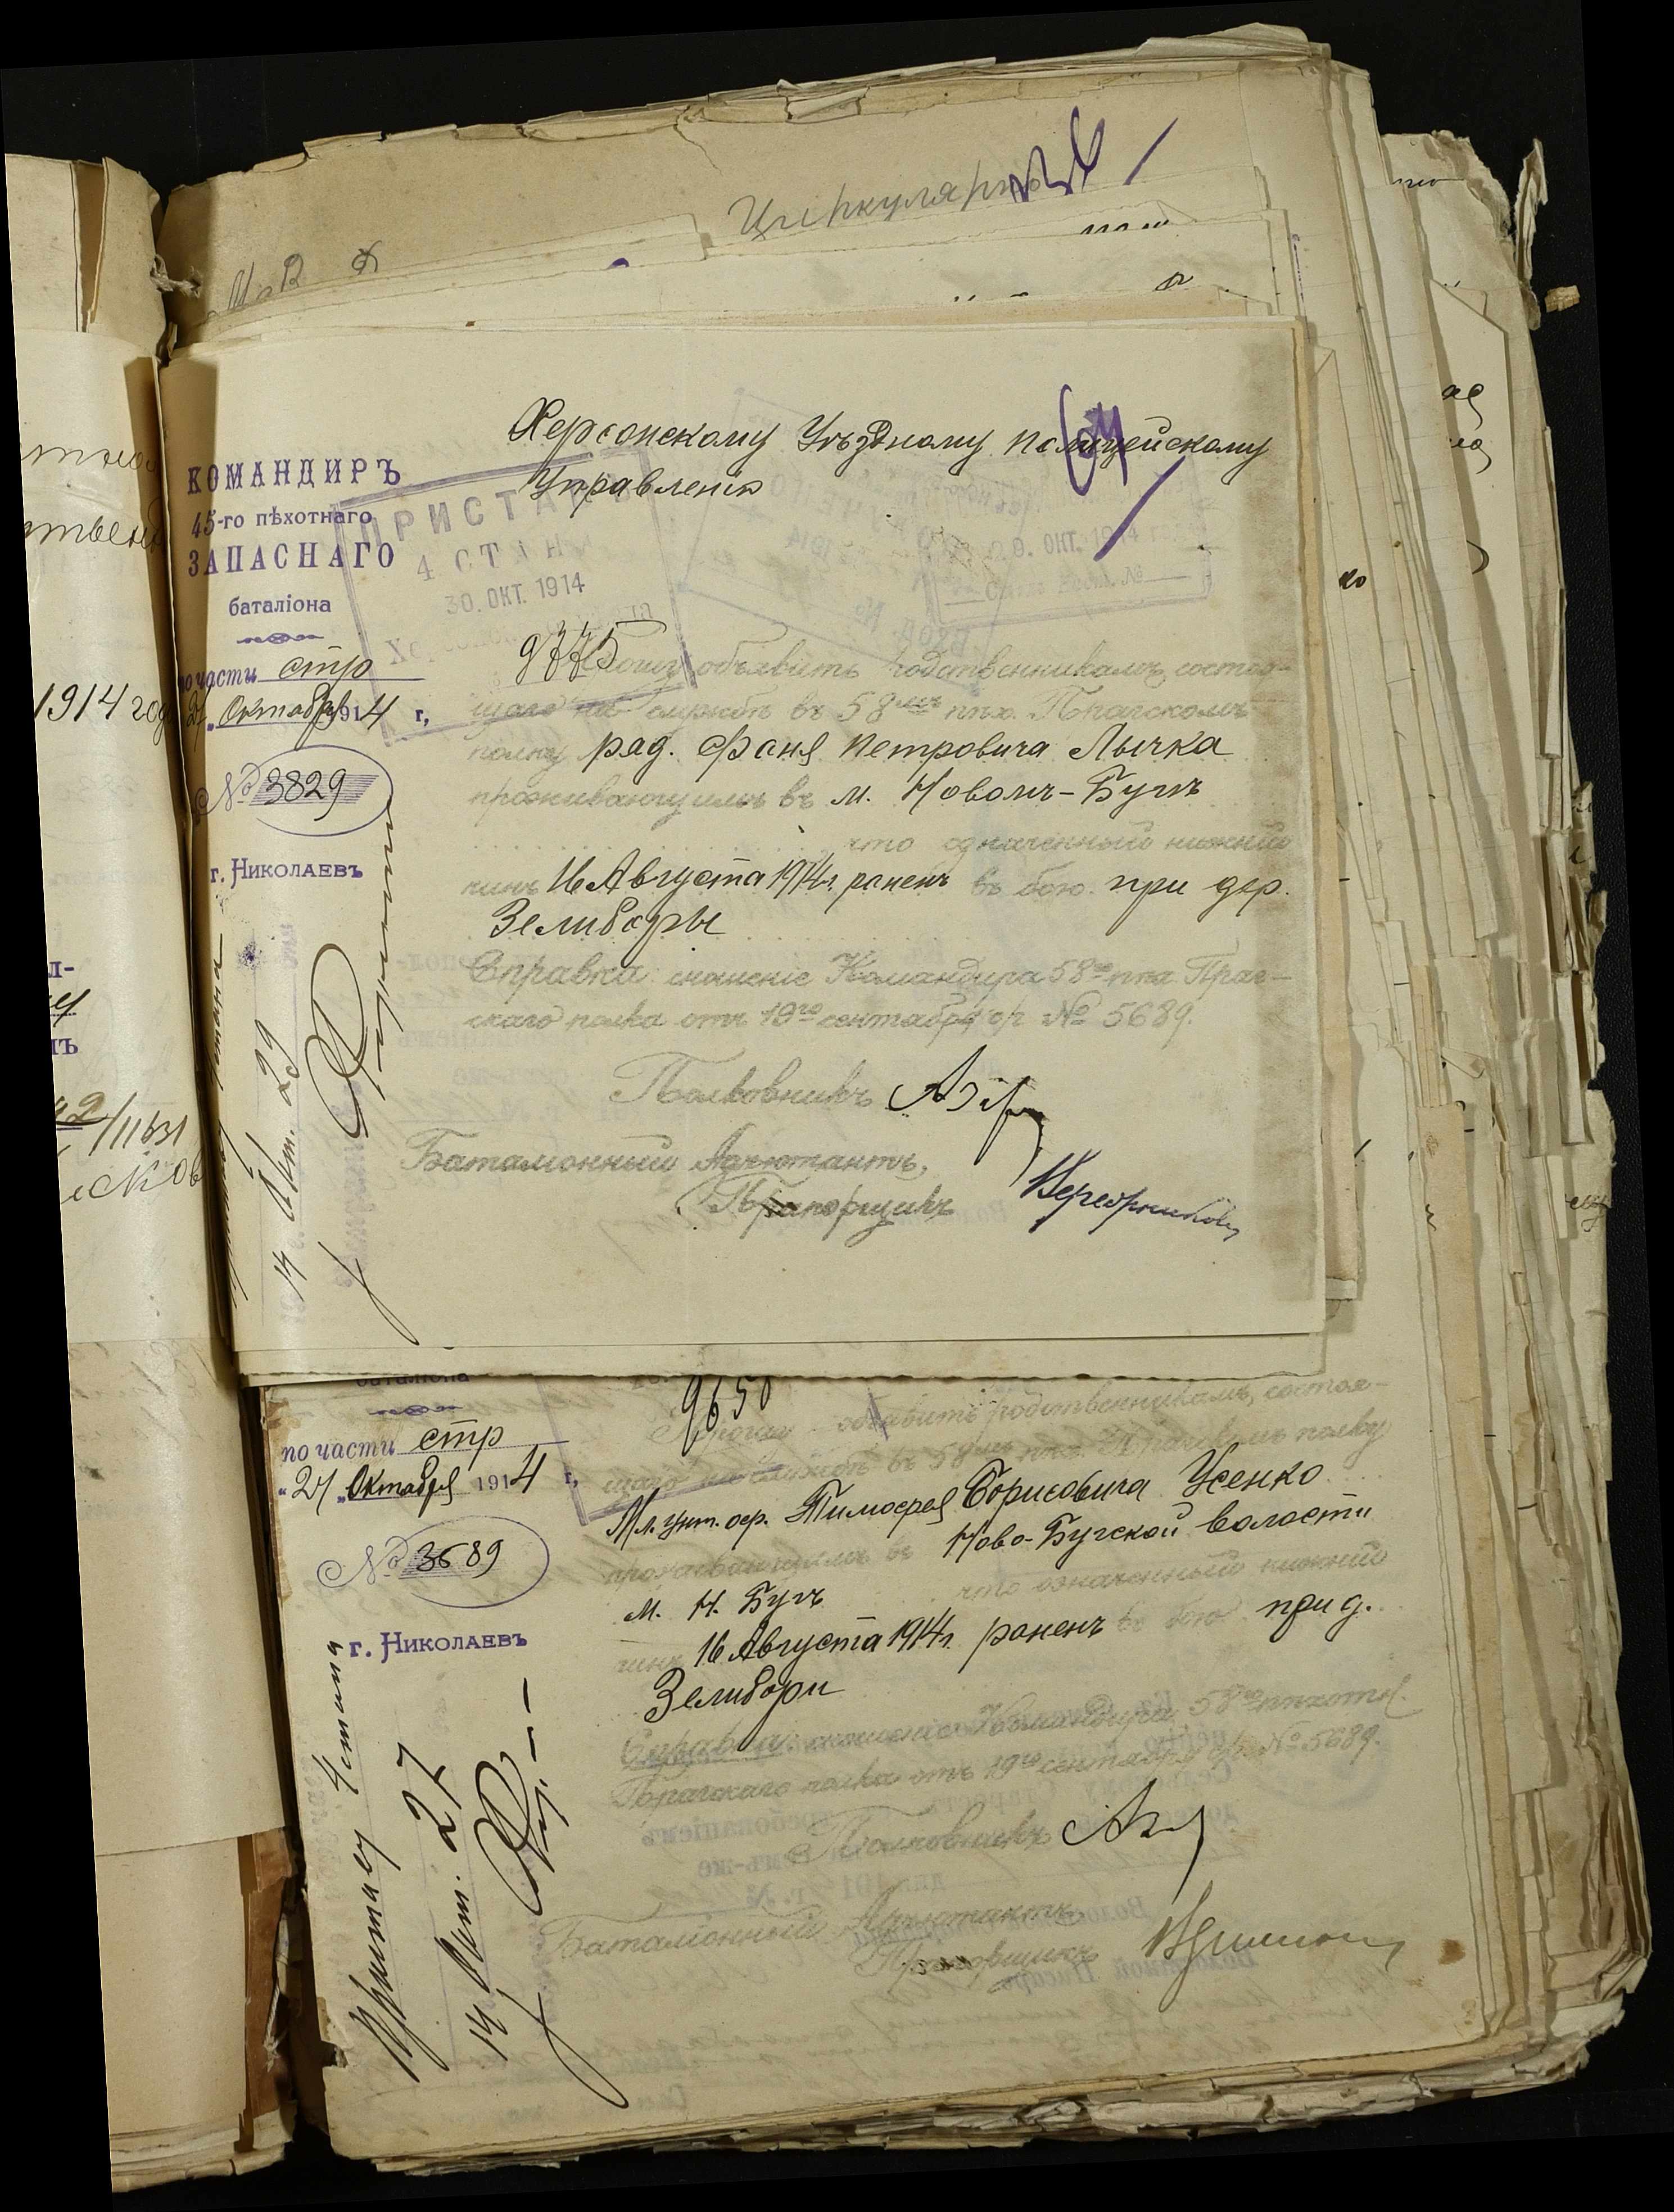 Циркулярно
Херсонскому Уѣздному Полицейскому
Управленію
64
КОМАНДИРЪ
45-го пѣхотнаго
ЗАПАСНАГО
баталіона
по части стр
Октября 1914 г,
№ 3829
г. Николаевъ
ПРИСТАВЪ
4 СТАНА
30. ОКТ. 1914
9. ОКТ. 1914
9775
Прошу объявить родственникамъ состоя-
щаго на службѣ въ 58мъ пѣх. Прагскомъ
полку ряд. Фаня Петровича Лычка
проживающимъ въ м. Новомъ-Бугѣ
что означенный нижній
чинъ 16 Августа 1914 г. раненъ въ бою при дер.
Зелиборы
Справка: сношеніе Командира 58го пѣх Праг-
скаго полка отъ 19го сентября с/г № 5689.
Полковникъ
Баталіонный Адъютантъ,
Прапорщикъ
14 Окт. 29
1914 год
баталіона
по части стр
"24" Октября 1914 г,
№ 3689
г. Николаевъ
9650
Прошу объявить родственникамъ, состоя-
щаго на службѣ въ 58мъ пѣх. Прагскомъ полку
Мл. унт. оф. Тимофея Борисовича Усенко
проживающимъ въ Ново-Бугской волости
м. Н. Бугѣ что означенный нижній
чинъ 16 Августа 1914 г. раненъ въ бою при д.
Зелибори
Справка: сношеніе Командира 58го пѣхотн.
Прагскаго полка отъ 19го сентября с/г. № 5689.
Полковникъ
Баталіонный Адъютантъ
Прапорщикъ
Приставу 4 стана
14 Окт. 27